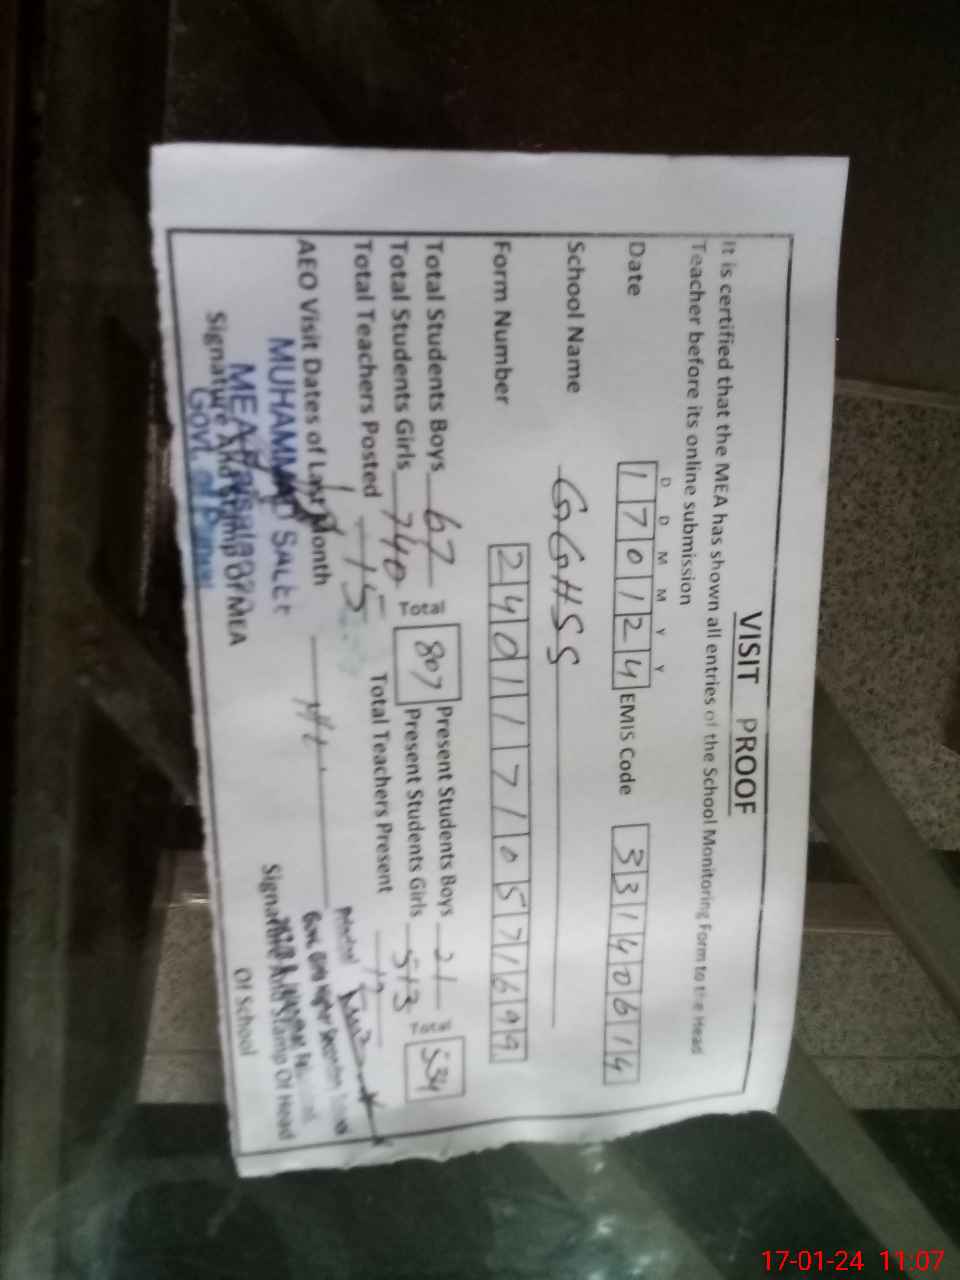 VISIT PROOF
It is certified that the MEA has shown all entries of the School Monitoring Form to the Head
Teacher before its online submission
D D M M Y Y
Date 170124 EMIS Code 33140614
School Name GGHSS
Form Number 24011710571699
Total Students Boys 67 Total 807 Present Students Boys 21 Total 534
Total Students Girls 740 Present Students Girls 513
Total Teachers Posted 15 Total Teachers Present 12
AEO Visit Dates of Last Month
MUHAMMAD
MEA
Signature And Stamp Of MEA
Govt. of
Principal
Govt. Girls Higher Secondary
Signature And Stamp Of Head
Of School
17-01-24 11:07